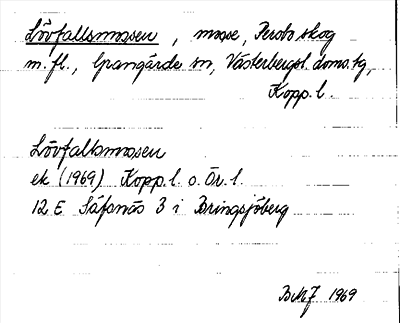 Lövfallsmossen, mosse, Perobo skog
m.fl., Grangärde sn, Västerbergsl. doms.tg,
Kopp. l.
Lövfallsmossen
ek (1969) Kopp. l. o. Ör. l.
12 E Säfsnäs 3 i Bringsjöberg
BMJ 1969